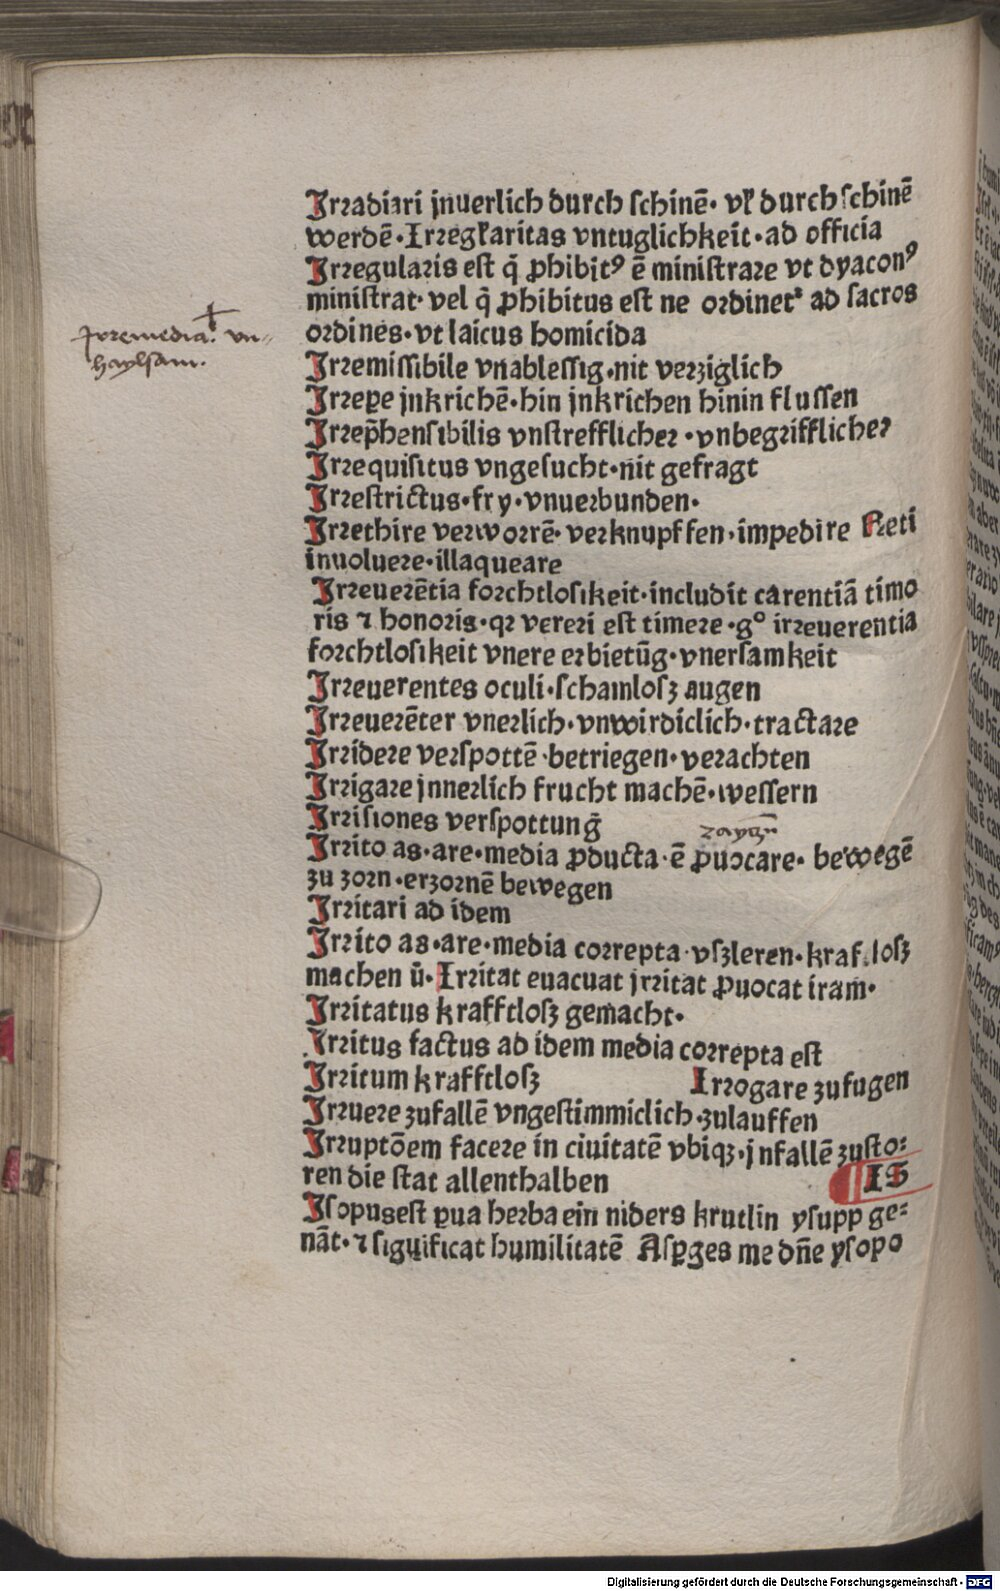 Irradiari jnuerlich durch schinē· vꝉ durch schinē
werdē·Irregꝉaritas vntuglichkeit·ad officia
Irregularis est q̄ ꝓhibitꝰ ē ministrare vt dyaconꝰ
ministrat· vel q̄ ꝓhibitus est ne ordinet᷑ ad sacros
ordines·vt laicus homicida
Irremediał vn=
haylsam.
Irremissibile vnablessig·nit verziglich
Irrepe jnkrichē·hin jnkrichen hinin flussen
Irrep̄hensibilis vnstrefflicher·vnbegrifflicher
Irrequisitus vngesucht·nit gefragt
Irrestrictus·fry·vnuerbunden·
Irrethire verworrē·verknupffen·impedire Reti
inuoluere·illaqueare
Irreuerētia forchtlosikeit·includit carentiā timo
ris ⁊ honoris·qꝛ vereri est timere·gº irreuerentia
forchtlosikeit vnere erbietūg·vnersamkeit
Irreuerentes oculi·schamlosz augen
Irreuerēter vnerlich·vnwirdiclich·tractare
Irridere verspottē·betriegen·verachten
Irrigare jnnerlich frucht machē·wessern
Irrisiones verspottunḡ
Irrito as·are·media ꝓducta·ē ꝓuocare· bewegē
zu zorn·erzornē bewegen
Irritari ad idem
Irrito as·are·media correpta·vszleren·kraf losz
machen ū·Irritat euacuat jrritat ꝓuocat iram·
Irritatus krafftlosz gemacht·
Irritus factus ad idem media correpta est
Irritum krafftlosz Irrogare zufugen
Irruere zufallē vngestimmiclich·zulauffen
Irruptōem facere in ciuitatē vbiqꝫ·jnfallē zusto:
ren die stat allenthalben IS
Isopus est ꝑua herba ein niders krutlin ysupp ge:
nāt·⁊ significat humilitatē Aspꝑges me dn̄e ysopo
Digitalisierung gefördert durch die Deutsche Forschungsgemeinschaft - DFG